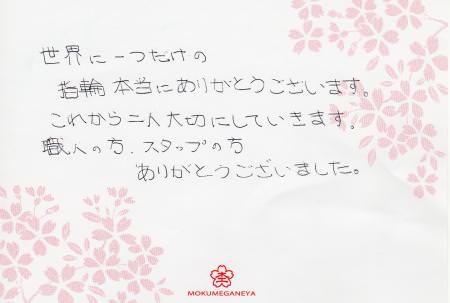 世界に一つだけの
指輪 本当にありがとうございます。
これから二人大切にしていきます。
職人の方、スタッフの方
ありがとうございました。
MOKUMEGANEYA